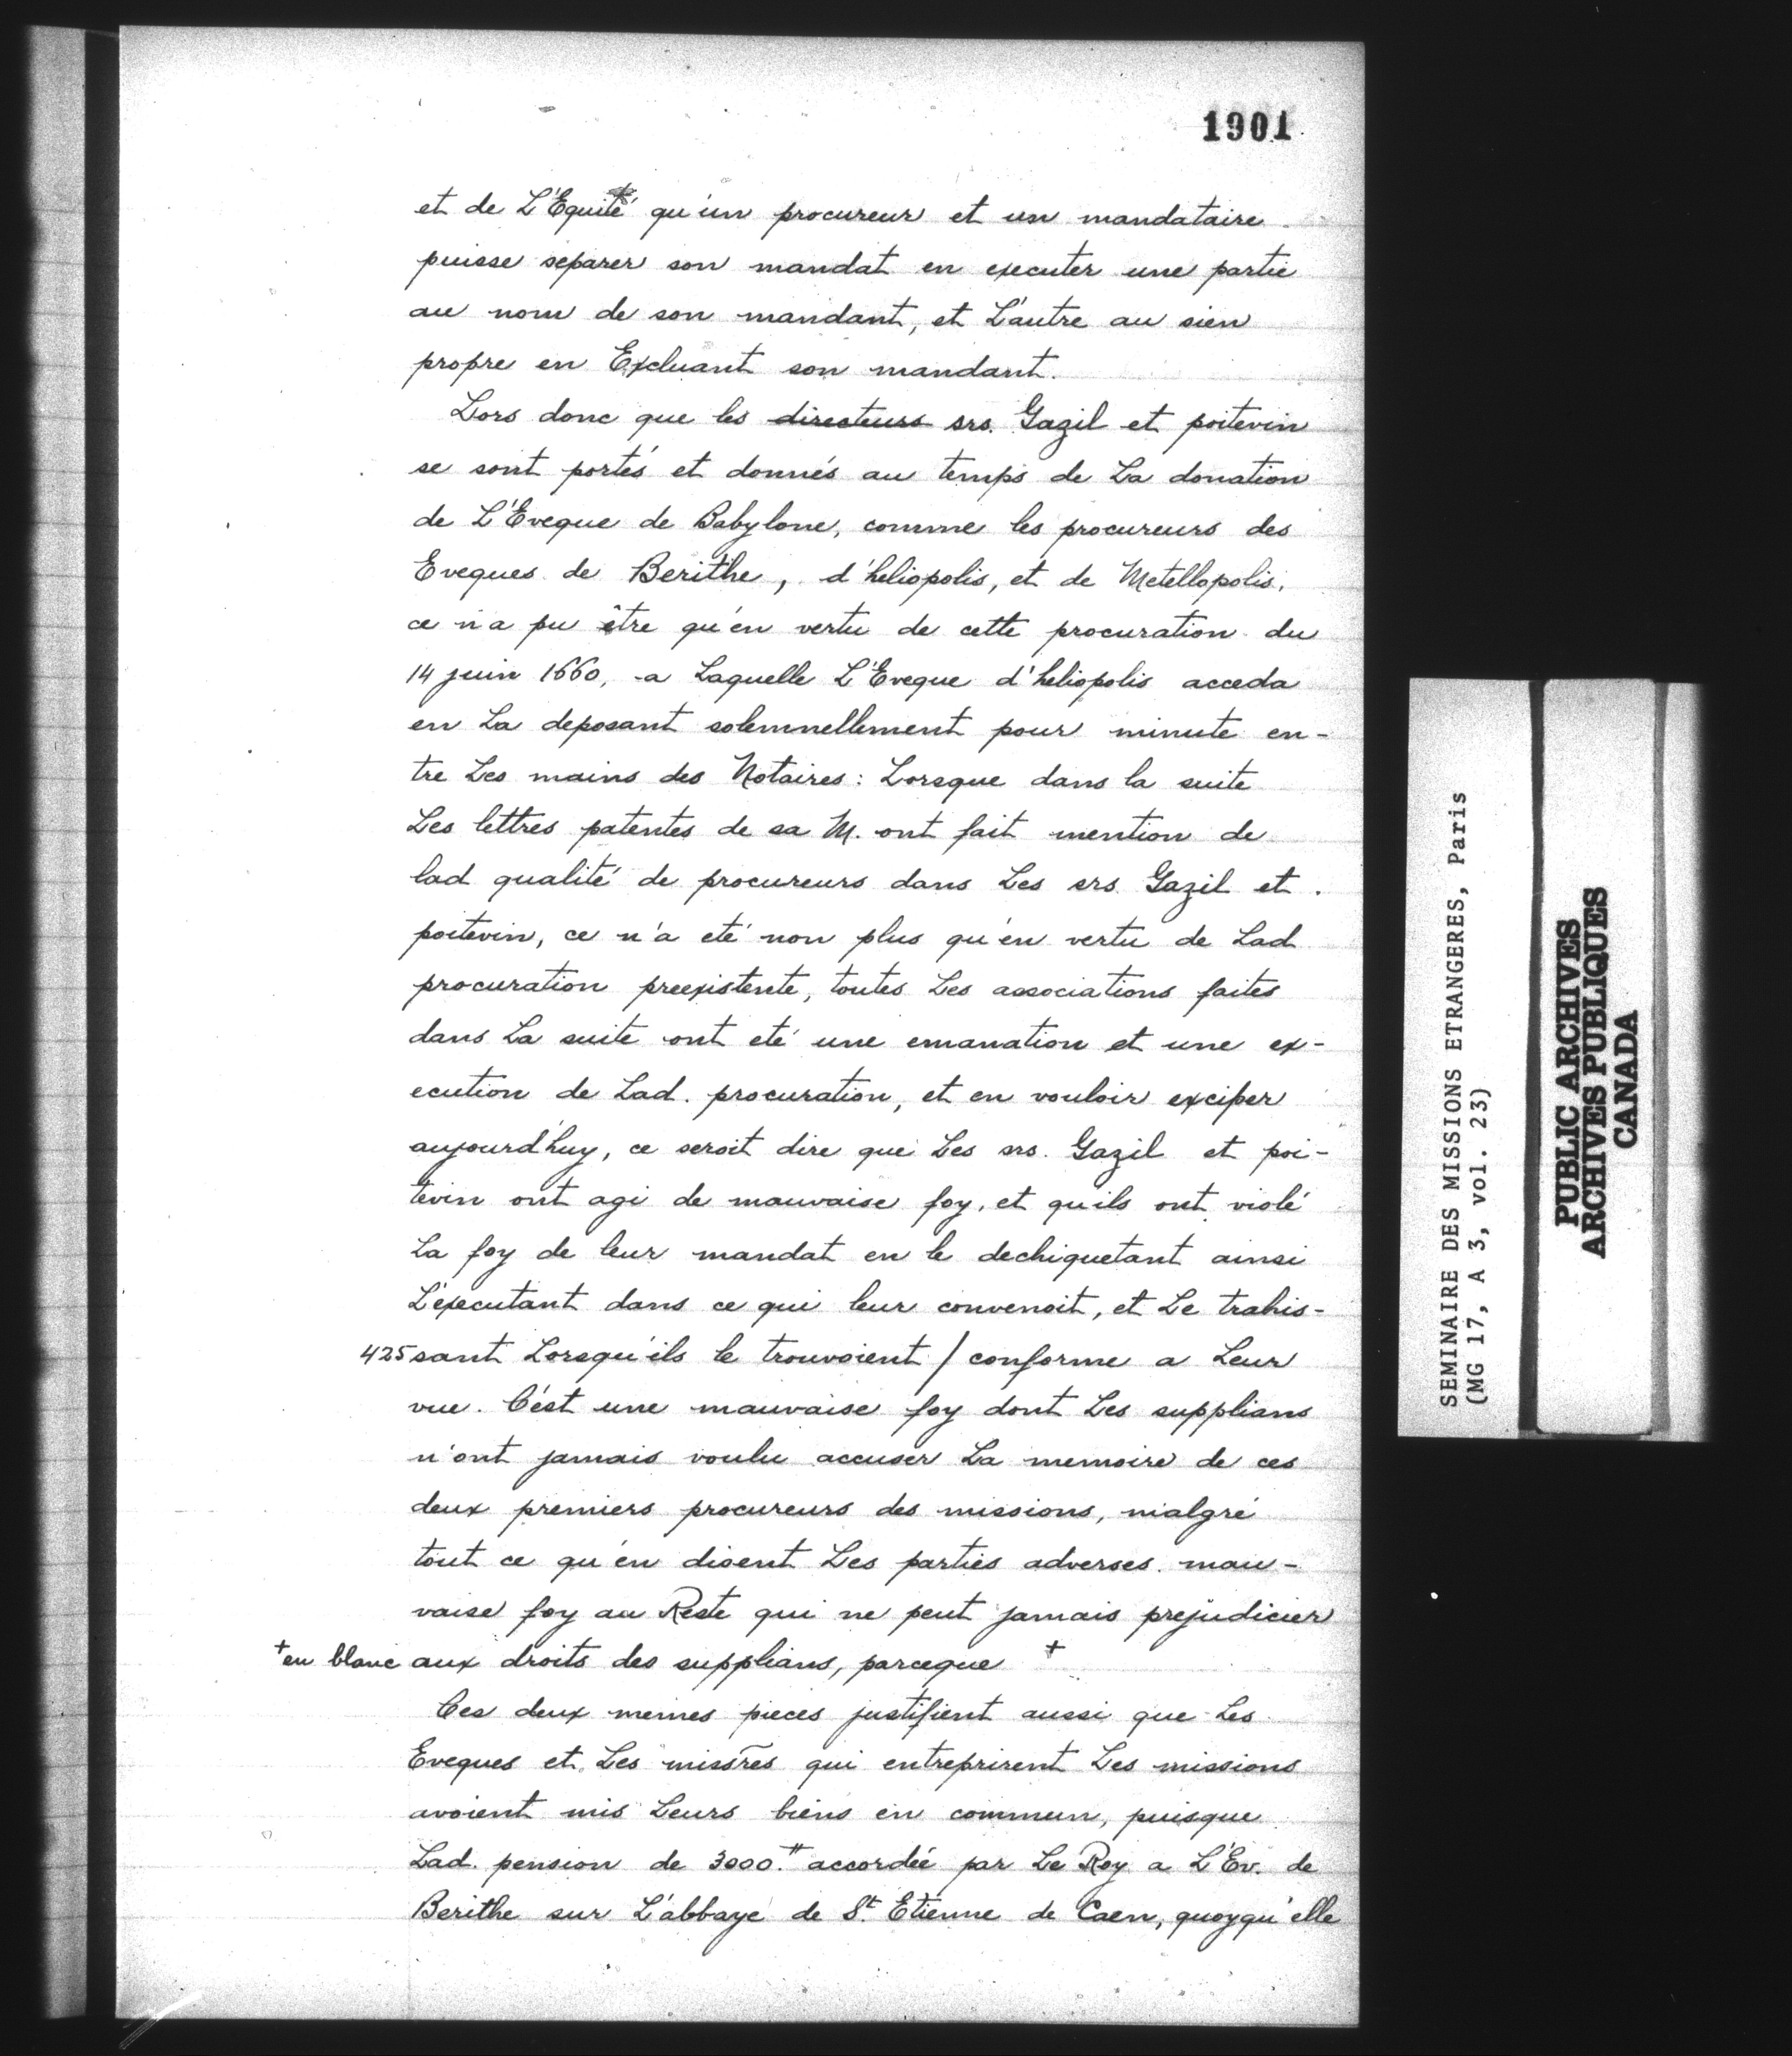 1901
et de L'Equité qu'un procureur et un mandataire
puisse separer son mandat en executer une partie
au nom de son mandant, et L'autre au sien
propre en Excluant son mandant.
Lors donc que les directeurs srs. Gazil et poitevin
se sont portés et donnés au temps de La donation
de L'Eveque de Babylone, comme les procureurs des
Eveques de Berithe, d'heliopolis, et de Metellopolis,
ce n'a pu être qu'en vertu de cette procuration du
14 juin 1660, a Laquelle L'Eveque d'heliopolis acceda
en La deposant solemnellement pour minute en-
tre Les mains des Notaires: Lorsque dans la suite
Les lettres patentes de sa M. ont fait mention de
lad qualité de procureurs dans Les srs Gazil et
poitevin, ce n'a eté non plus qu'en vertu de Lad
procuration preexistente, toutes Les associations faites
dans La suite ont eté une emanation et une ex-
ecution de Lad. procuration, et en vouloir exciper
aujourd'huy, ce seroit dire que Les srs. Gazil et poi-
tevin ont agi de mauvaise foy, et qu'ils ont violé
La foy de leur mandat en le dechiquetant ainsi
L'executant dans ce qui leur convenoit, et Le trahis-
425 sant Lorsqu'ils le trouvoient / conforme a Leur
vue. C'est une mauvaise foy dont Les supplians
n'ont jamais voulu accuser La memoire de ces
deux premiers procureurs des missions, malgré
tout ce qu'en disent Les parties adverses. mau-
vaise foy au Reste qui ne peut jamais prejudicier
+ en blanc aux droits des supplians, parceque +
Ces deux memes pieces justifient aussi que Les
Eveques et Les missres qui entreprirent Les missions
avoient mis Leurs biens en commun, puisque
Lad. pension de 3000.tt accordée par Le Roy a L'Ev. de
Berithe sur L'abbaye de St. Etienne de Caen, quoyqu'elle
SEMINAIRE DES MISSIONS ETRANGERES, Paris
(MG 17, A 3, vol. 23)
PUBLIC ARCHIVES
ARCHIVES PUBLIQUES
CANADA